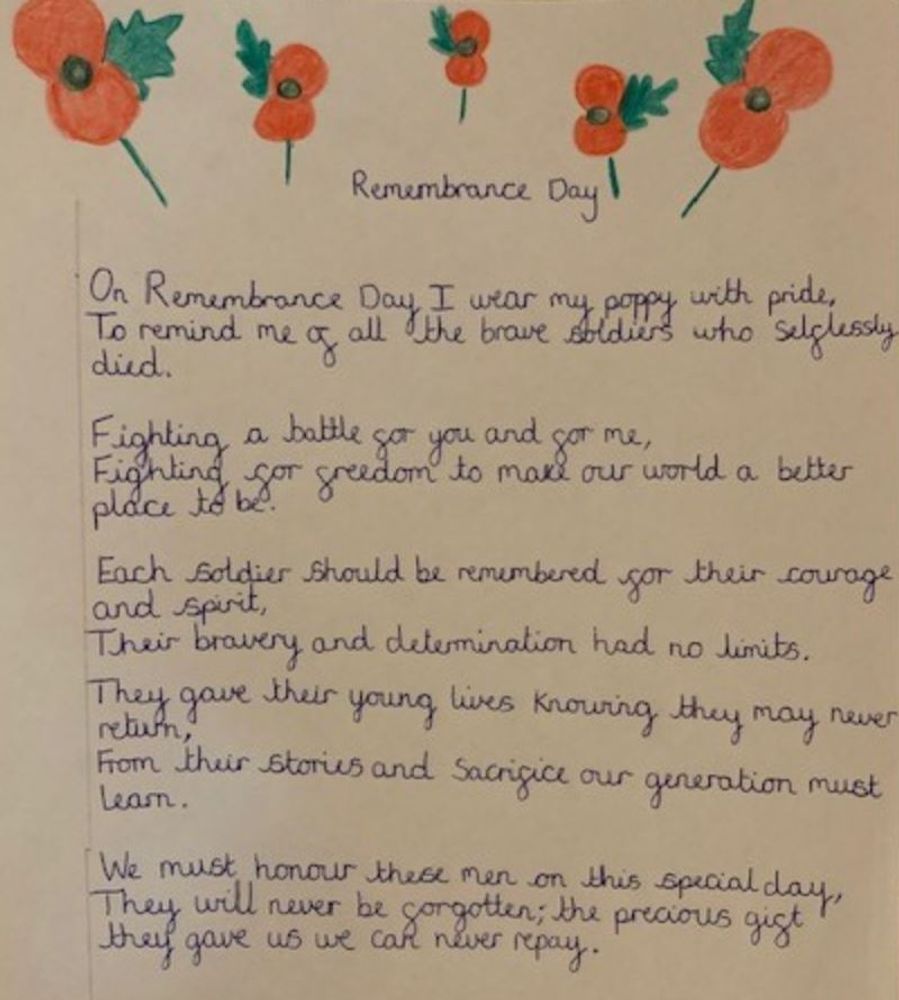 Remembrance Day
On Remembrance Day I wear my poppy with pride,
To remind me of all the brave soldiers who selflessly
died.
Fighting a battle for you and for me,
Fighting for freedom to make our world a better
place to be.
Each soldier should be remembered for their courage
and spirit,
Their bravery and determination had no limits.
They gave their young lives knowing they may never
return,
From their stories and sacrifice our generation must
learn.
We must honour these men on this special day,
They will never be forgotten; the precious gift
they gave us we can never repay.